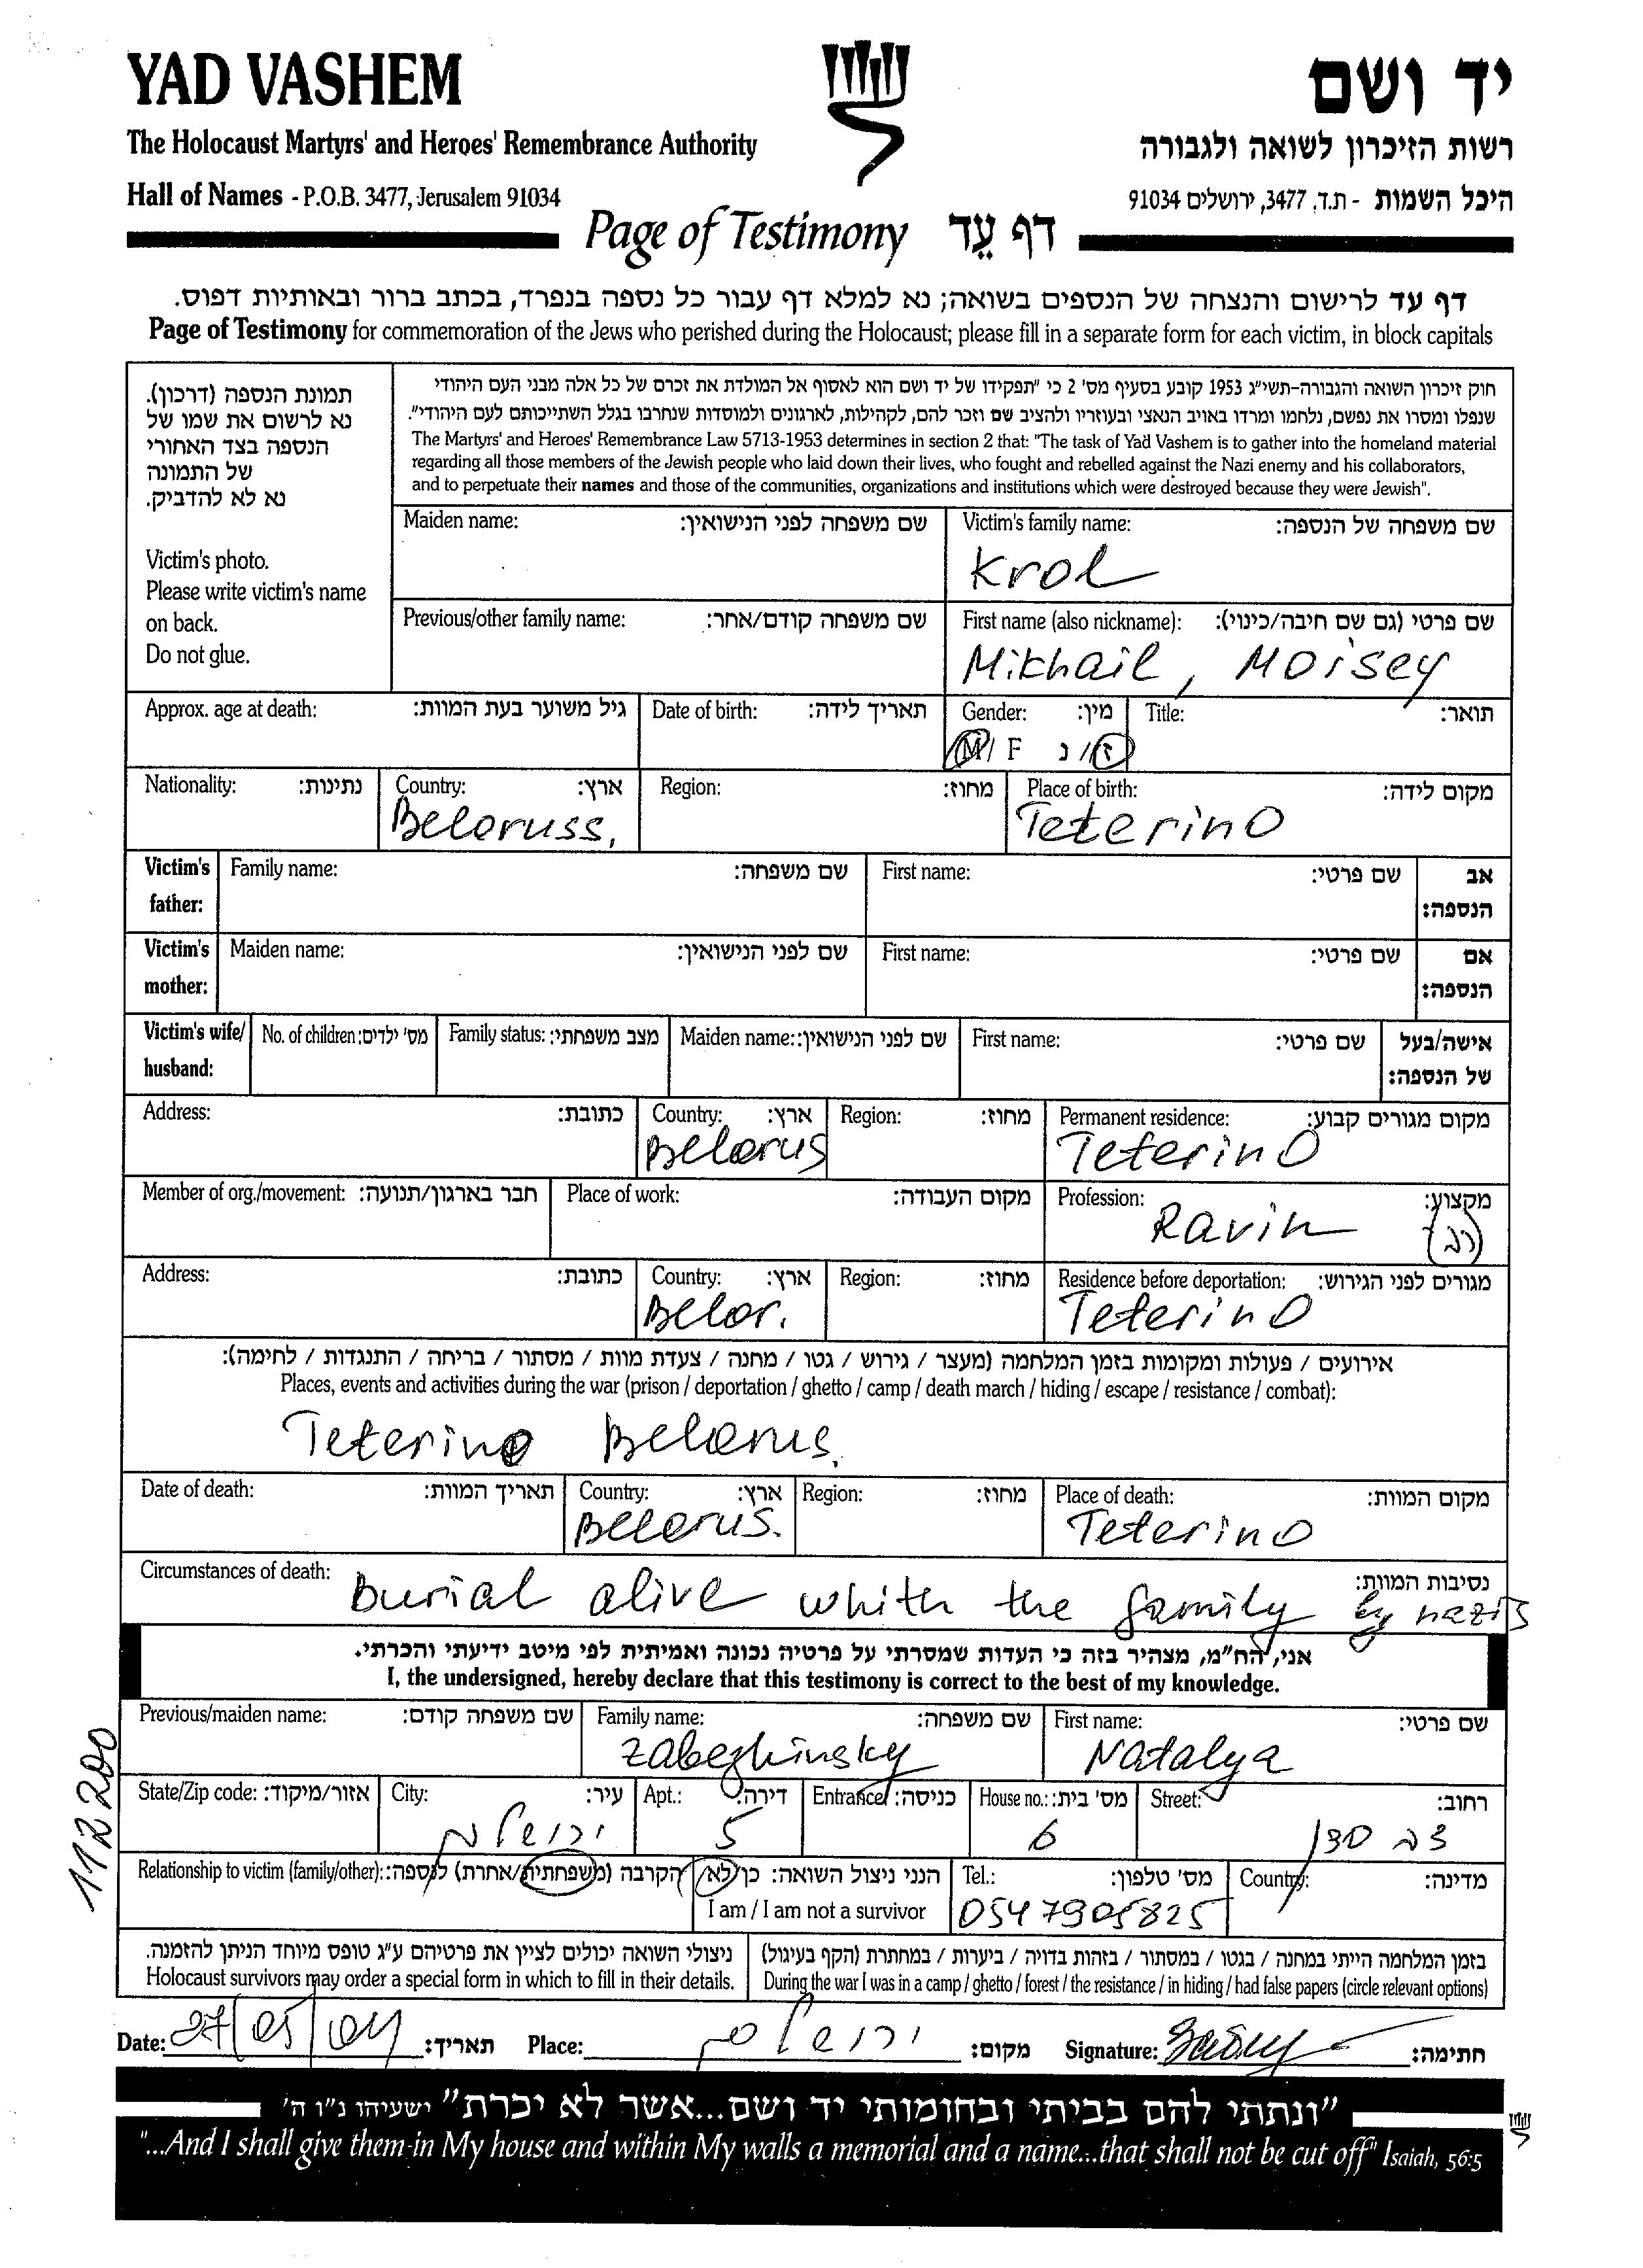 YAD VASHEM
יד ושם
The Holocaust Martyrs' and Heroes' Remembrance Authority
רשות הזיכרון לשואה ולגבורה
Hall of Names - P.O.B. 3477, Jerusalem 91034
היכל השמות - ת.ד. 3477, ירושלים 91034
Page of Testimony דף עֵד
דף עד לרישום והנצחה של הנספים בשואה; נא למלא דף עבור כל נספה בנפרד, בכתב ברור ובאותיות דפוס.
Page of Testimony for commemoration of the Jews who perished during the Holocaust; please fill in a separate form for each victim, in block capitals
תמונת הנספה (דרכון).
נא לרשום את שמו של
הנספה בצד האחורי
של התמונה
נא לא להדביק.
Victim's photo.
Please write victim's name
on back.
Do not glue.
חוק זיכרון השואה והגבורה-תשי"ג 1953 קובע בסעיף מס' 2 כי "תפקידו של יד ושם הוא לאסוף אל המולדת את זכרם של כל אלה מבני העם היהודי
שנפלו ומסרו את נפשם, נלחמו ומרדו באויב הנאצי ובעוזריו ולהציב שם וזכר להם, לקהילות, לארגונים ולמוסדות שנחרבו בגלל השתייכותם לעם היהודי".
The Martyrs' and Heroes' Remembrance Law 5713-1953 determines in section 2 that: "The task of Yad Vashem is to gather into the homeland material
regarding all those members of the Jewish people who laid down their lives, who fought and rebelled against the Nazi enemy and his collaborators,
and to perpetuate their names and those of the communities, organizations and institutions which were destroyed because they were Jewish".
Maiden name: שם משפחה לפני הנישואין: Victim's family name: שם משפחה של הנספה:
Krol
Previous/other family name: שם משפחה קודם/אחר: First name (also nickname): שם פרטי (גם שם חיבה/כינוי):
Mikhail, Moisey
Approx. age at death: גיל משוער בעת המוות: Date of birth: תאריך לידה: Gender: מין: Title: תואר:
M/ F ז/ נ
Nationality: נתינות: Country: ארץ: Region: מחוז: Place of birth: מקום לידה:
Beloruss, Teterino
Victim's father: Family name: שם משפחה: First name: שם פרטי: אב הנספה:
Victim's mother: Maiden name: שם לפני הנישואין: First name: שם פרטי: אם הנספה:
Victim's wife/ husband: No. of children: מס' ילדים: Family status: מצב משפחתי: Maiden name: שם לפני הנישואין: First name: שם פרטי: אישה/בעל של הנספה:
Address: כתובת: Country: ארץ: Region: מחוז: Permanent residence: מקום מגורים קבוע:
Belorus Teterino
Member of org./movement: חבר בארגון/תנועה: Place of work: מקום העבודה: Profession: מקצוע:
Ravin (רב)
Address: כתובת: Country: ארץ: Region: מחוז: Residence before deportation: מגורים לפני הגירוש:
Belor. Teterino
אירועים / פעולות ומקומות בזמן המלחמה (מעצר / גירוש / גטו / מחנה / צעדת מוות / מסתור / בריחה / התנגדות / לחימה):
Places, events and activities during the war (prison / deportation / ghetto / camp / death march / hiding / escape / resistance / combat):
Teterino Belorus.
Date of death: תאריך המוות: Country: ארץ: Region: מחוז: Place of death: מקום המוות:
Belorus. Teterino
Circumstances of death: נסיבות המוות:
Burial alive whith the family by nazis
אני, הח"מ, מצהיר בזה כי העדות שמסרתי על פרטיה נכונה ואמיתית לפי מיטב ידיעתי והכרתי.
I, the undersigned, hereby declare that this testimony is correct to the best of my knowledge.
Previous/maiden name: שם משפחה קודם: Family name: שם משפחה: First name: שם פרטי:
Zabeghinsky Natalya
State/Zip code: אזור/מיקוד: City: עיר: Apt.: דירה: Entrance: כניסה: House no.: מס' בית: Street: רחוב:
ירושלים 5 6
Relationship to victim (family/other): הקרבה (משפחתית/אחרת) לנספה: הנני ניצול השואה: כן/לא Tel.: מס' טלפון: Country: מדינה:
I am / I am not a survivor 0547905825
ניצולי השואה יכולים לציין את פרטיהם ע"ג טופס מיוחד הניתן להזמנה.
Holocaust survivors may order a special form in which to fill in their details.
בזמן המלחמה הייתי במחנה / בגטו / במסתור / בזהות בדויה / ביערות / במחתרת (הקף בעיגול)
During the war I was in a camp / ghetto / forest / the resistance / in hiding / had false papers (circle relevant options)
Date: 27/05/04 תאריך: Place: ירושלים מקום: Signature: חתימה:
112200
"ונתתי להם בביתי ובחומותי יד ושם...אשר לא יכרת" ישעיהו נ"ו ה'
"...And I shall give them in My house and within My walls a memorial and a name...that shall not be cut off" Isaiah, 56:5